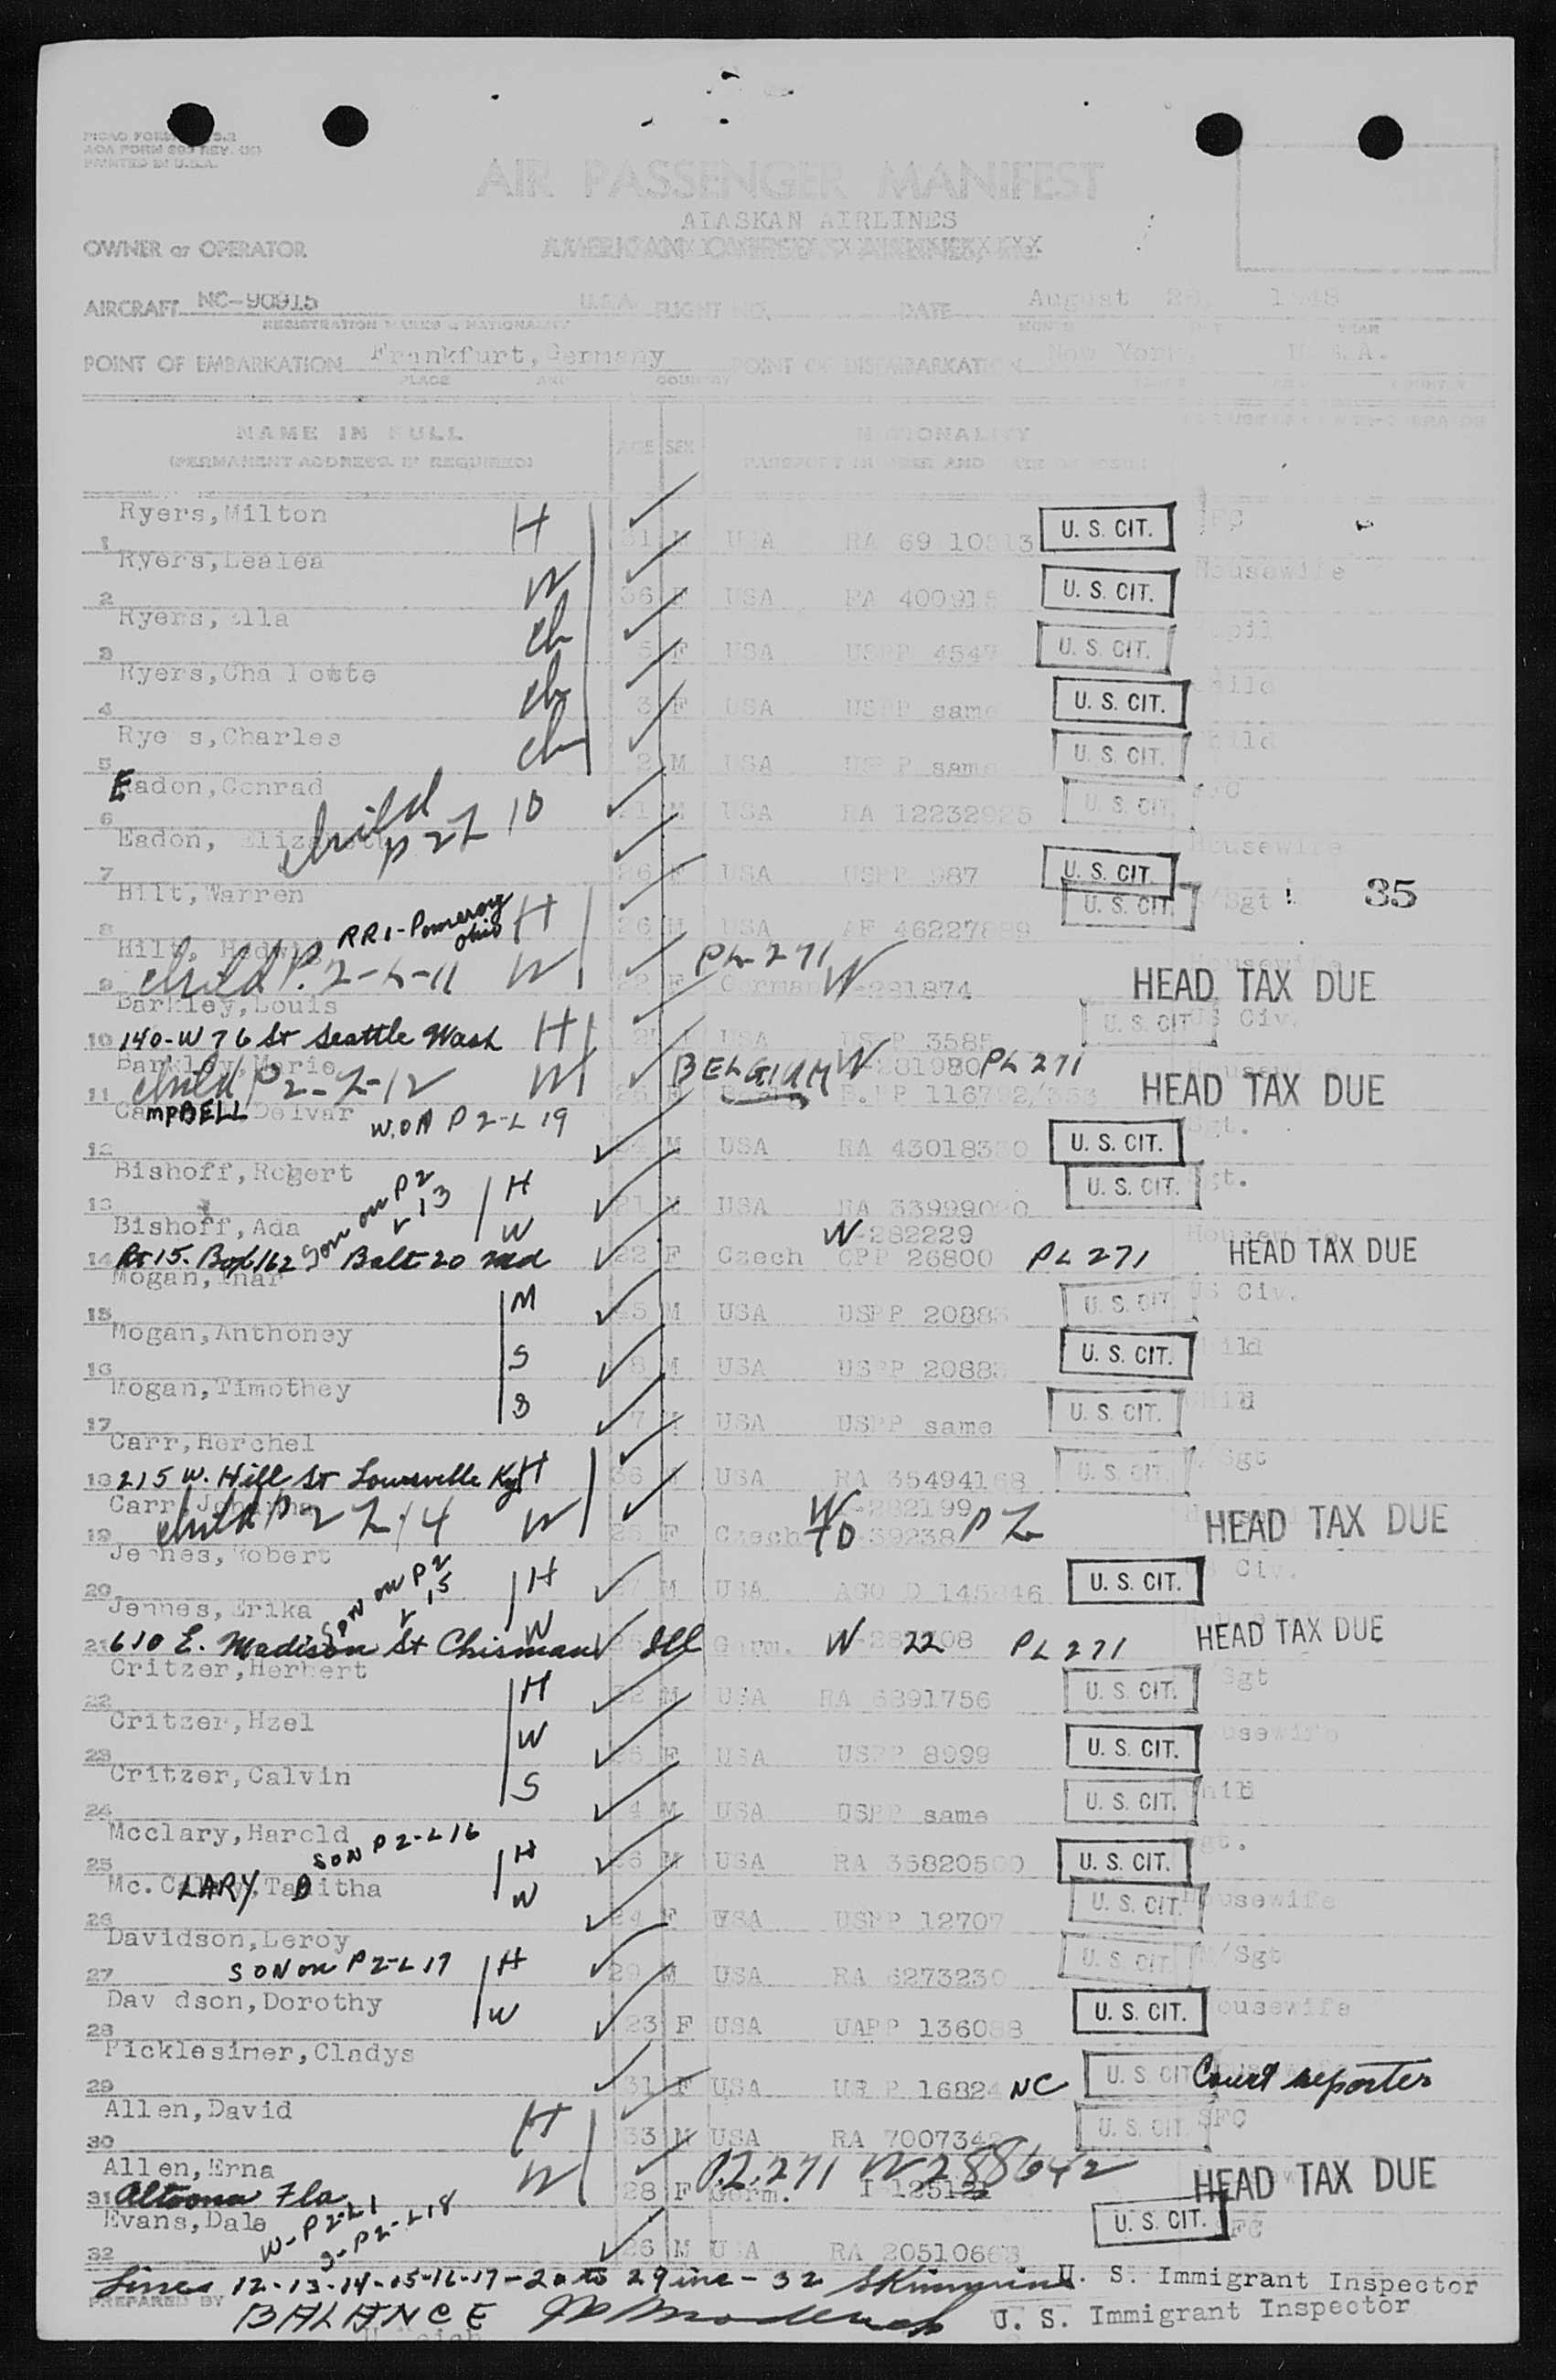 PRINTED IN U.S.A.
AIR PASSENGER MANIFEST
ALASKAN AIRLINES
OWNER or OPERATOR
AIRCRAFT NC-90915 U.S.A. FLIGHT NO. DATE August 1948
REGISTRATION MARKS & NATIONALITY MONTH YEAR
POINT OF EMBARKATION Frankfurt, Germany POINT OF DISEMBARKATION New York U.S.A.
PLACE AND COUNTRY
NAME IN FULL AGE SEX NATIONALITY
(PERMANENT ADDRESS, IF REQUIRED)
Ryers,Milton H
1 31 USA RA 69 U. S. CIT.
Ryers,Lealea W Housewife
2 36 F USA RA 40091 U. S. CIT.
Ryers, Ella ch
3 5 F USA USPP 4547 U. S. CIT.
Ryers,Cha lotte ch
4 3 F USA USPP same U. S. CIT. Child
Rye s,Charles ch
5 2 M USA USPP same U. S. CIT. Child
Eadon,Conrad
6 child P2L 10 M USA RA 12232925 U. S. CIT.
Eadon, Housewife
7 26 F USA USPP 987 U. S. CIT.
Hilt,Warren H 35
8 RR1-Pomeroy Ohio 26 M USA AF 46227889 U. S. CIT. /Sgt
Hilt, W PL 271
9 child P. 2-L-11 22 F German W-281874 HEAD TAX DUE
Barkley,Louis
10 140-W 76 St Seattle Wash H USA USPP 3585 U. S. CIT. US Civ.
Barkley,Marie W-281980 PL 271
11 child P2-L-12 W 26 F BELGIUM HEAD TAX DUE
CAMPBELL Delvar W.O.A P2-L 19 Sgt.
12 M USA RA 43018330 U. S. CIT.
Bishoff,Rogert H
13 son on P2 L 13 21 M USA RA 33999090 U. S. CIT.
Bishoff,Ada W W-282229 Housewife
14 Rt 15. Box 162 Balt 20 Md 22 F Czech CPP 26800 PL 271 HEAD TAX DUE
Mogan,Inar M US Civ.
15 45 M USA USPP 20883 U. S. CIT.
Mogan,Anthoney S
16 8 M USA USPP 20883 U. S. CIT. Child
Mogan,Timothey S
17 7 M USA USPP same U. S. CIT. Child
Carr,Herchel
18 215 W. Hill St Louisville Ky H 36 USA RA 35494168 U. S. CIT. Sgt
Carr, W-282199
19 child P 2 L-14 W 25 F Czech TD-39238 PL HEAD TAX DUE
Jennes,Robert H
20 son on P2 L 15 M USA AGO D U. S. CIT. Civ.
Jennes,Erika W
21 610 E. Madison St Chrisman Ill Germ. W PL 271 HEAD TAX DUE
Critzer,Herbert H Sgt
22 32 M USA RA 6891756 U. S. CIT.
Critzer,Hzel W Housewife
23 F USA USPP 8999 U. S. CIT.
Critzer,Calvin S
24 4 M USA USPP same U. S. CIT. Child
Mcclary,Harold SON P2-L16 H
25 26 M USA RA 35820500 U. S. CIT. Sgt.
Mc.CLARY,Tabitha W
26 24 F USA USPP 12707 U. S. CIT. Housewife
Davidson,Leroy
27 SON on P2-L17 H 29 M USA RA 6273230 U. S. CIT. M/Sgt
Dav dson,Dorothy W
28 23 F USA UAPP 136088 U. S. CIT. Housewife
Picklesimer,Cladys
29 31 F USA 16824 NC U. S. CIT. Court reporter
Allen,David H
30 33 M USA RA 7007342 U. S. CIT. SFC
Allen,Erna W P.L.271 W288642
31 Altoona Fla 28 F Germ. HEAD TAX DUE
Evans,Dale W-P2-L1 S-P2-L18
32 26 M U A RA 20510663 U. S. CIT.
Lines 12-13-14-15-16-17-20 to 29 inc-32 U. S. Immigrant Inspector
PREPARED BY BALANCE U. S. Immigrant Inspector